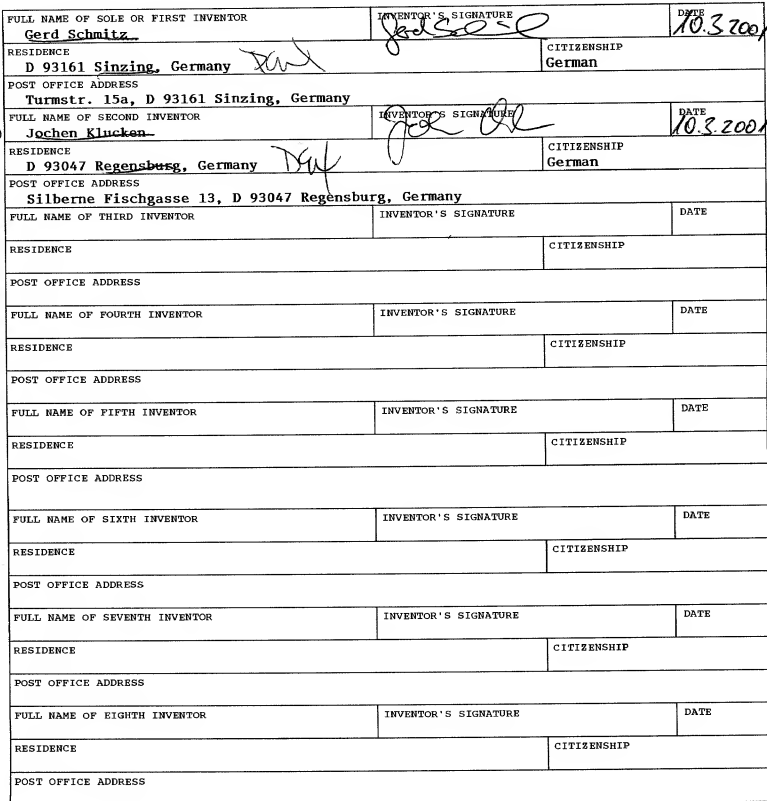 FULL NAME OF SOLE OR FIRST INVENTOR INVENTOR'S SIGNATURE DATE
Gerd Schmitz 10.3.2001
RESIDENCE CITIZENSHIP
D 93161 Sinzing, Germany German
POST OFFICE ADDRESS
Turmstr. 15a, D 93161 Sinzing, Germany
FULL NAME OF SECOND INVENTOR INVENTOR'S SIGNATURE DATE
Jochen Klucken 10.3.2001
RESIDENCE CITIZENSHIP
D 93047 Regensburg, Germany German
POST OFFICE ADDRESS
Silberne Fischgasse 13, D 93047 Regensburg, Germany
FULL NAME OF THIRD INVENTOR INVENTOR'S SIGNATURE DATE
RESIDENCE CITIZENSHIP
POST OFFICE ADDRESS
FULL NAME OF FOURTH INVENTOR INVENTOR'S SIGNATURE DATE
RESIDENCE CITIZENSHIP
POST OFFICE ADDRESS
FULL NAME OF FIFTH INVENTOR INVENTOR'S SIGNATURE DATE
RESIDENCE CITIZENSHIP
POST OFFICE ADDRESS
FULL NAME OF SIXTH INVENTOR INVENTOR'S SIGNATURE DATE
RESIDENCE CITIZENSHIP
POST OFFICE ADDRESS
FULL NAME OF SEVENTH INVENTOR INVENTOR'S SIGNATURE DATE
RESIDENCE CITIZENSHIP
POST OFFICE ADDRESS
FULL NAME OF EIGHTH INVENTOR INVENTOR'S SIGNATURE DATE
RESIDENCE CITIZENSHIP
POST OFFICE ADDRESS